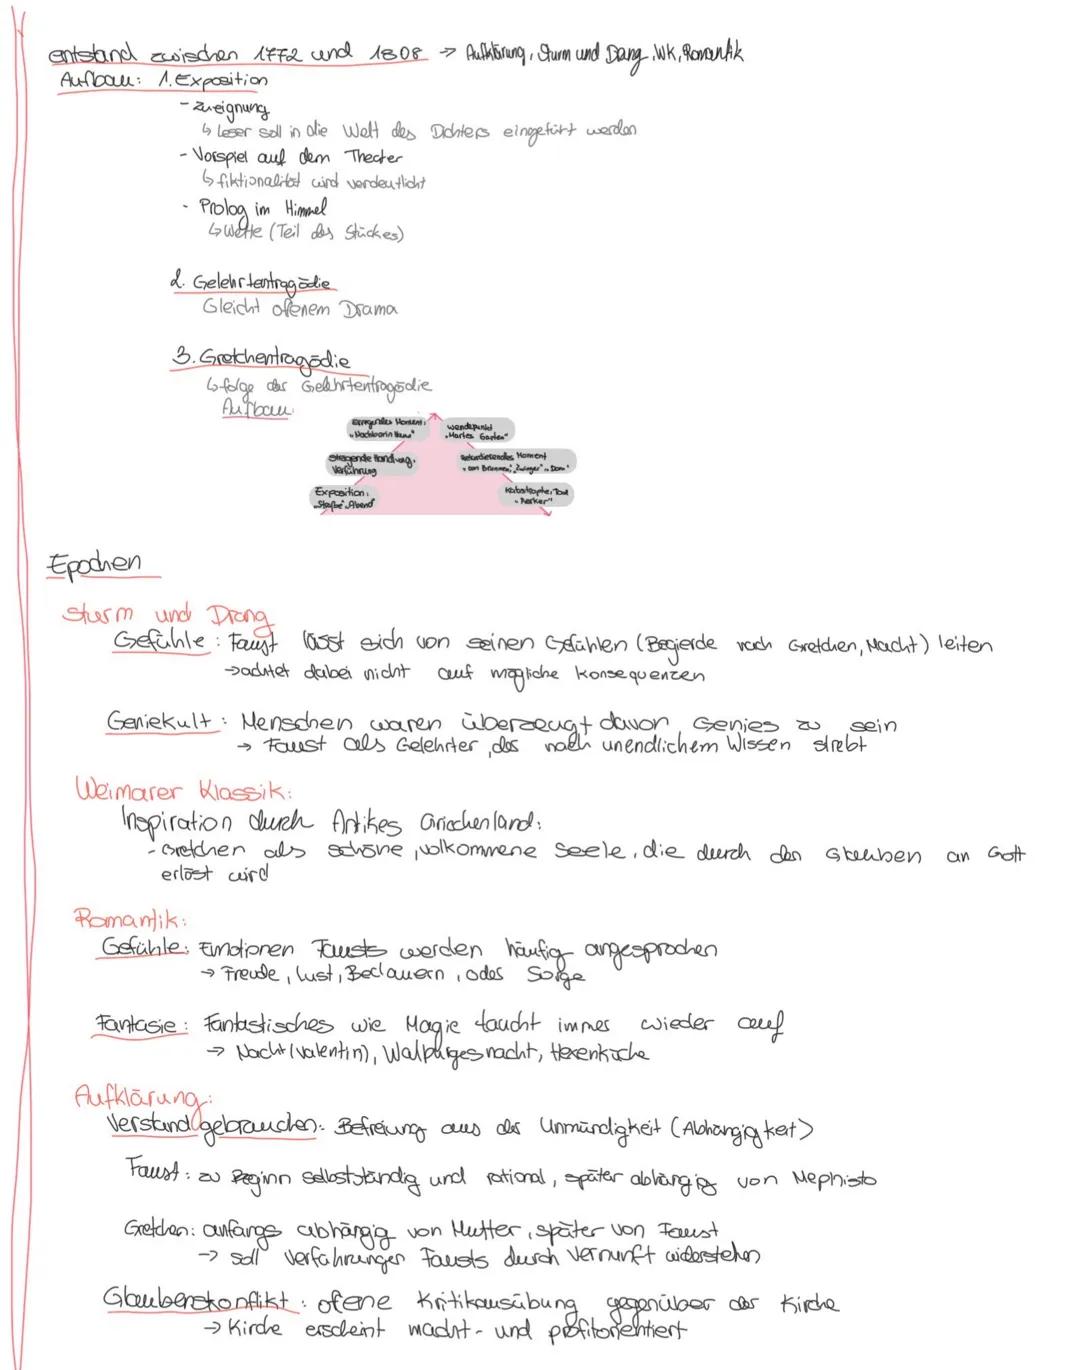 entstand zwischen 1772 und 1808 → Aufklärung, Sturm und Drang, WK, Romantik
Aufbau: 1. Exposition
- Zueignung
↳ Leser soll in die Welt des Dichters eingefürt werden
- Vorspiel auf dem Theater
↳ fiktionalität wird verdeutlicht
- Prolog im Himmel
↳ Wette (Teil des Stückes)
2. Gelehrtentragödie
Gleicht ofenem Drama
3. Gretchentragödie
↳ folge der Gelehrtentragödie
Aufbau:
Erregendes Moment:
„Nachbarin Haus"
Wendepunkt
„Martes Garten"
Steigende Handlung,
Verführung
Retardierendes Moment
„am Brunnen", „Zwinger", „Dom"
Exposition:
„Staße", „Abend"
Katastrophe, Tod
„Kerker"
Epochen
Sturm und Drang
Gefühle: Faust lässt sich von seinen Gefühlen (Begierde nach Gretchen, Macht) leiten
→ achtet dabei nicht auf mögliche Konsequenzen
Geniekult: Menschen waren überzeugt davon Genies zu sein
→ Faust als Gelehrter, der nach unendlichem Wissen strebt
Weimarer Klassik:
Inspiration durch Antikes Griechenland:
- Gretchen als schöne, volkommene Seele, die durch den Glauben an Gott
erlöst wird
Romantik:
Gefühle: Emotionen Fausts werden häufig angesprochen
→ Freude, Lust, Bedauern, oder Sorge
Fantasie: Fantastisches wie Magie taucht immer wieder auf
→ Nacht (Valentin), Walpurgesnacht, Hexenküche
Aufklärung:
Verstand gebrauchen: Befreiung aus der Unmündigkeit (Abhängigkeit)
Faust: zu Beginn selbstständig und rational, später abhängig von Mephisto
Gretchen: anfangs abhängig von Mutter, später von Faust
→ soll Verführungen Fausts durch Vernunft widerstehen
Glaubenskonflikt: ofene Kritikausübung gegenüber der Kirche
→ Kirche erscheint macht- und profitorientiert